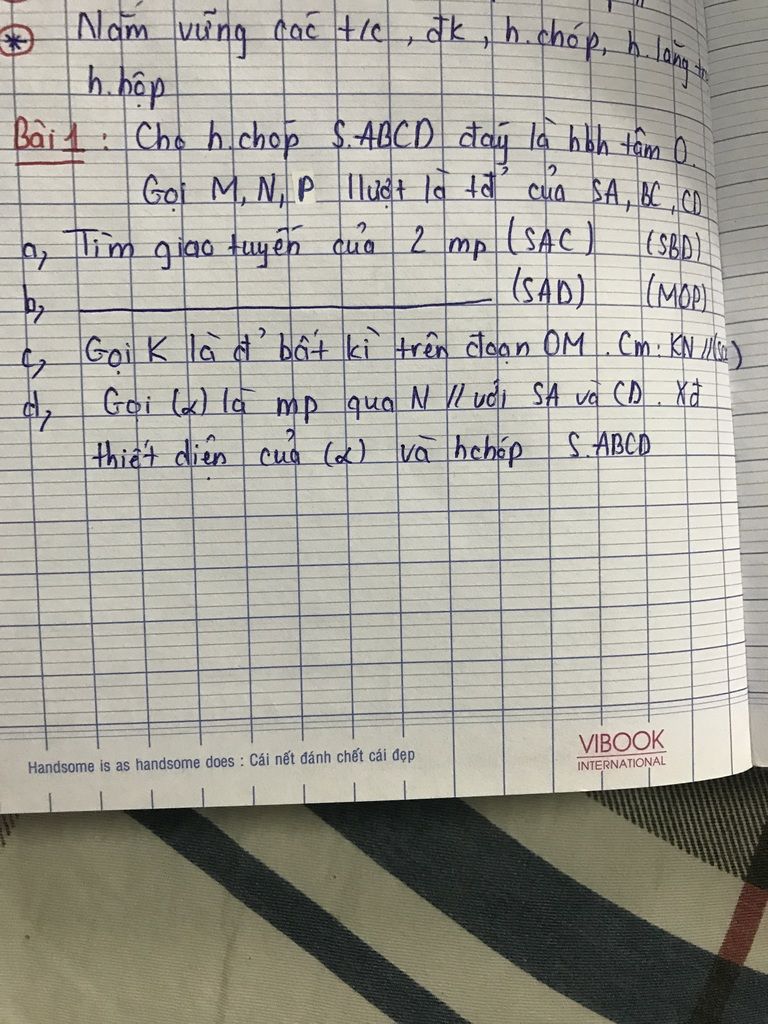 * Nắm vững các t/c, đk, h.chóp, h.lăng
h.hộp
Bài 1 : Cho h.chóp S.ABCD đáy là hbh tâm O.
Gọi M, N, P llượt là tđ' của SA, BC, CD
a, Tìm giao tuyến của 2 mp (SAC) (SBD)
b, ____________________ (SAD) (MOP)
c, Gọi K là đ' bất kì trên đoạn OM. Cm: KN //
d, Gọi (α) là mp qua N // với SA và CD. Xđ
thiết diện của (α) và hchóp S.ABCD
Handsome is as handsome does : Cái nết đánh chết cái đẹp
VIBOOK
INTERNATIONAL